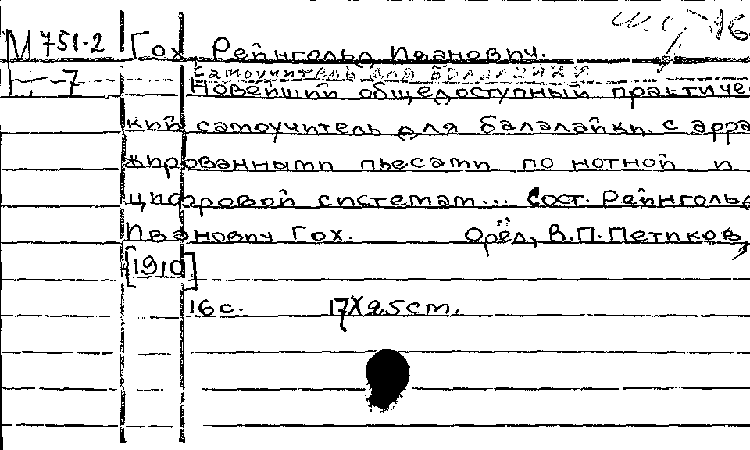 М 751-2 Гох Рейнгольд Иванович.
Г.-7 Самоучитель для балалайки
Новейший общедоступный практичес
кий самоучитель для балалайки с арра
жированными пьесами по нотной и
цифровой системам... Сост. Рейнгольд
Иванович Гох. Орёл, В.П.Петиков,
[1910]
16 с. 17X25 cm.